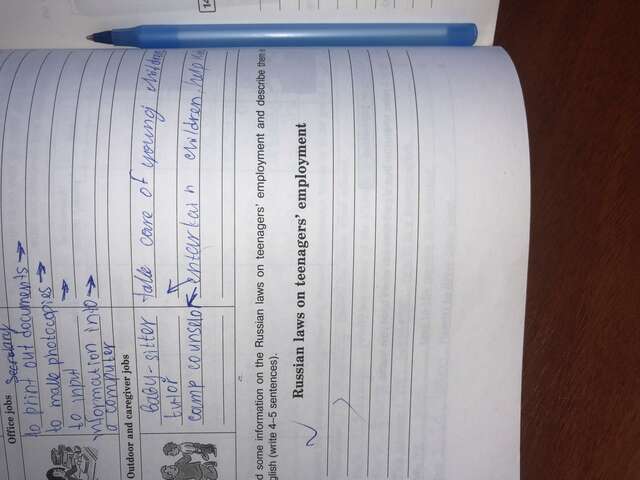 Office jobs Secretary
to print out documents →
to make photocopies →
to input →
information into →
a computer
Outdoor and caregiver jobs
baby-sitter take care of young
tutor
camp counselo entertain children, help
d some information on the Russian laws on teenagers' employment and describe them
glish (write 4–5 sentences).
Russian laws on teenagers' employment